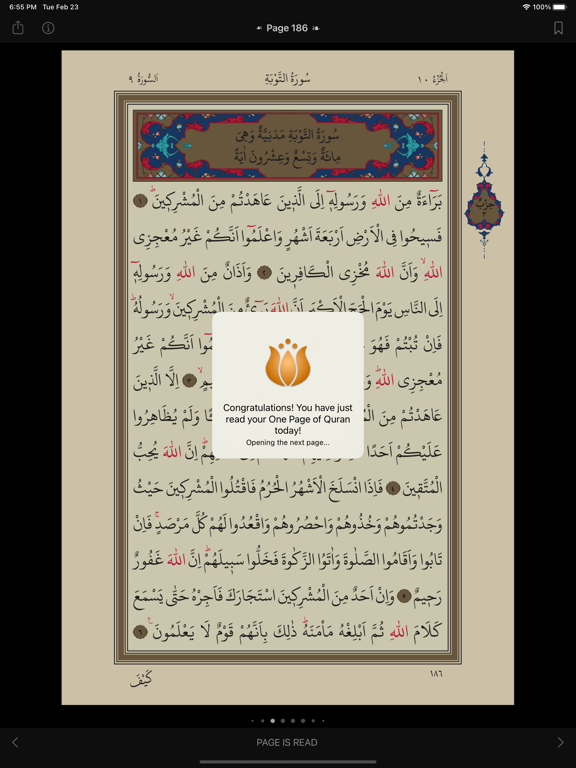 6:55 PM Tue Feb 23 100%
Page 186
اَلْجُزْءُ ١٠ سُورَةُ التَّوْبَةِ اَلسُّورَةُ ٩
سُورَةُ التَّوْبَةِ مَدَنِيَّةٌ وَهِيَ
مِائَةٌ وَتِسْعٌ وَعِشْرُونَ اٰيَةً
حِزْبٌ
٢
بَرَٓاءَةٌ مِنَ اللّٰهِ وَرَسُولِهٖٓ اِلَى الَّذٖينَ عَاهَدْتُمْ مِنَ الْمُشْرِكٖينَؕ ١
فَسٖيحُوا فِي الْاَرْضِ اَرْبَعَةَ اَشْهُرٍ وَاعْلَمُٓوا اَنَّكُمْ غَيْرُ مُعْجِزِي
اللّٰهِۙ وَاَنَّ اللّٰهَ مُخْزِي الْكَافِرٖينَ ٢ وَاَذَانٌ مِنَ اللّٰهِ وَرَسُولِهٖٓ
اِلَى النَّاسِ يَوْمَ الْحَجِّ الْاَكْبَرِ اَنَّ اللّٰهَ بَرٖٓيءٌ مِنَ الْمُشْرِكٖينَۙ وَرَسُولُهُؕ
فَاِنْ تُبْتُمْ فَهُوَ اَنَّكُمْ غَيْرُ
مُعْجِزِي اللّٰهِؕ ٣ اِلَّا الَّذٖينَ
عَاهَدْتُمْ مِنَ وَلَمْ يُظَاهِرُوا
عَلَيْكُمْ اَحَدًا اِنَّ اللّٰهَ يُحِبُّ
الْمُتَّقٖينَ ٤ فَاِذَا انْسَلَخَ الْاَشْهُرُ الْحُرُمُ فَاقْتُلُوا الْمُشْرِكٖينَ حَيْثُ
وَجَدْتُمُوهُمْ وَخُذُوهُمْ وَاحْصُرُوهُمْ وَاقْعُدُوا لَهُمْ كُلَّ مَرْصَدٍۚ فَاِنْ
تَابُوا وَاَقَامُوا الصَّلٰوةَ وَاٰتَوُا الزَّكٰوةَ فَخَلُّوا سَبٖيلَهُمْؕ اِنَّ اللّٰهَ غَفُورٌ
رَحٖيمٌ ٥ وَاِنْ اَحَدٌ مِنَ الْمُشْرِكٖينَ اسْتَجَارَكَ فَاَجِرْهُ حَتّٰى يَسْمَعَ
كَلَامَ اللّٰهِ ثُمَّ اَبْلِغْهُ مَأْمَنَهُؕ ذٰلِكَ بِاَنَّهُمْ قَوْمٌ لَا يَعْلَمُونَࣖ ٦
Congratulations! You have just
read your One Page of Quran
today!
Opening the next page...
١٨٦ كَيْفَ
PAGE IS READ